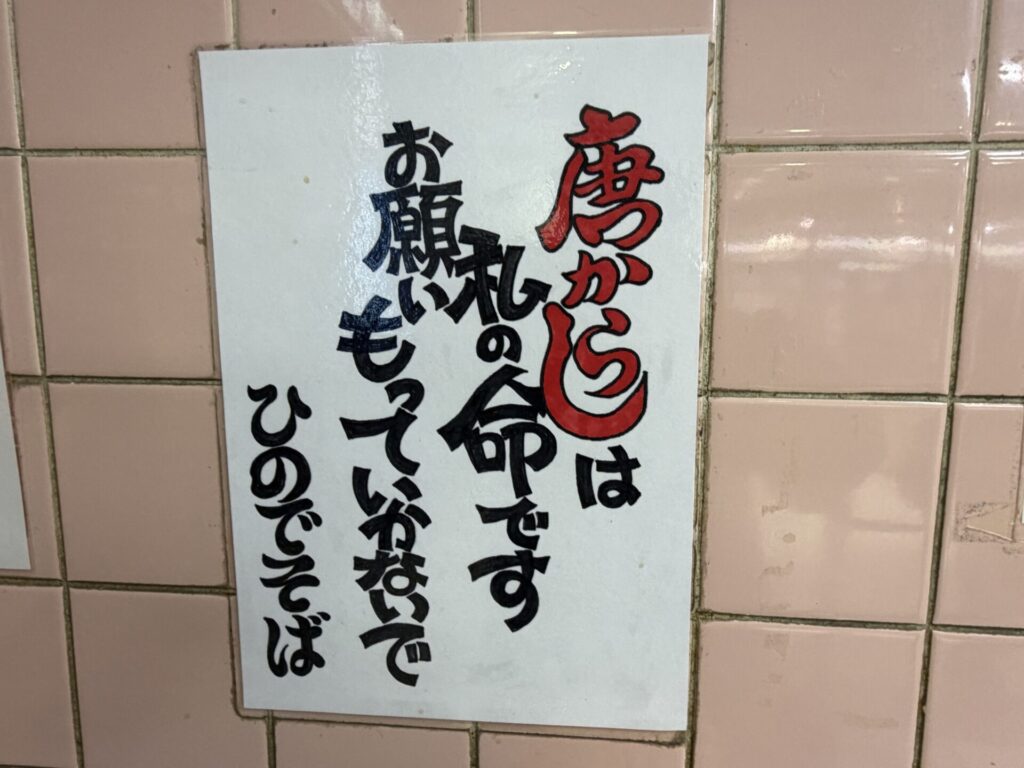 唐からしは
私の命です
お願いもっていかないで
ひのでそば